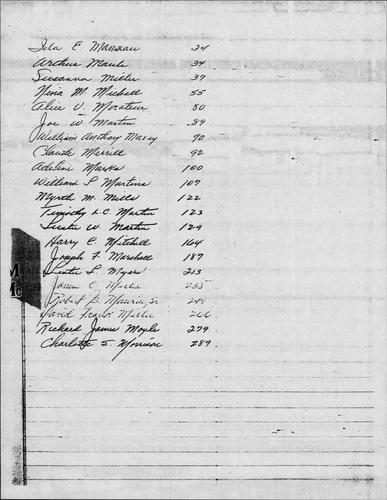 Ida E Manseau 24
Arthur Maule 34
Susanna Misler 39
Nina M. Mickell 55
Alice V. 80
Joe W. Martin 89
William Anthony Maxey 90
Claude Merrill 92
Adeline Marks 100
William L Martins 107
Myrtle M. Mills 122
Timothy L.C. Martin 123
W. Martin 129
Harry C. Mitchell 164
Joseph F. Marshall 187
Lester L Myers 213
James E. 235
Robert B. Maurice, Sr 249
David Frank 266
Richard James Moyle 279
Charlotte S. Morrison 289
M
Mc